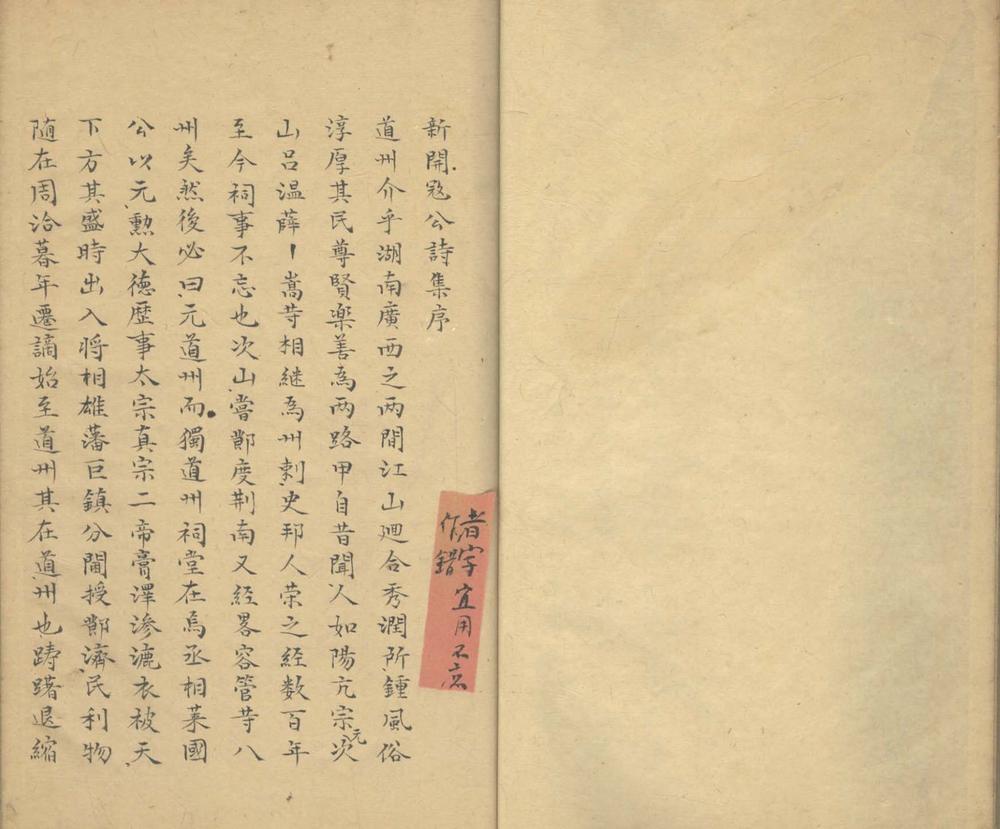 新開寇公詩集序
道州介乎湖南廣西之两間江山廻合秀潤所鍾風俗
淳厚其民尊賢楽善為两路甲自昔聞人如陽亢宗元次
山吕温薛丨嵩等相継為州刺史邦人荣之経数百年
至今祠事不忘也次山嘗節度荆南又経畧容管等八
州矣然後必曰元道州而獨道州祠堂在焉丞相莱國
公以元勲大徳歴事太宗真宗二帝膏澤渗漉衣被天
下方其盛時出入将相雄藩巨鎮分閫授節濟民利物
随在周洽暮年遷謫始至道州其在道州也踌躇退縮
者字宜用不忘
作錯